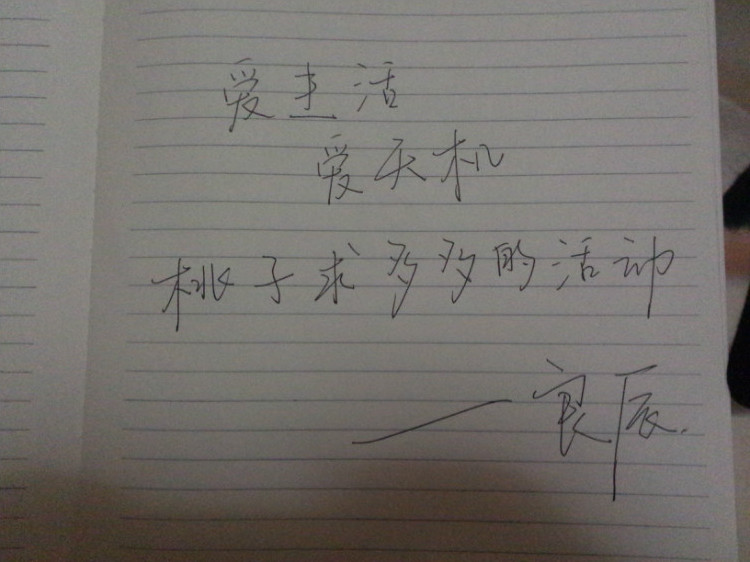 爱生活
爱天机
桃子求多多的活动
——良辰.